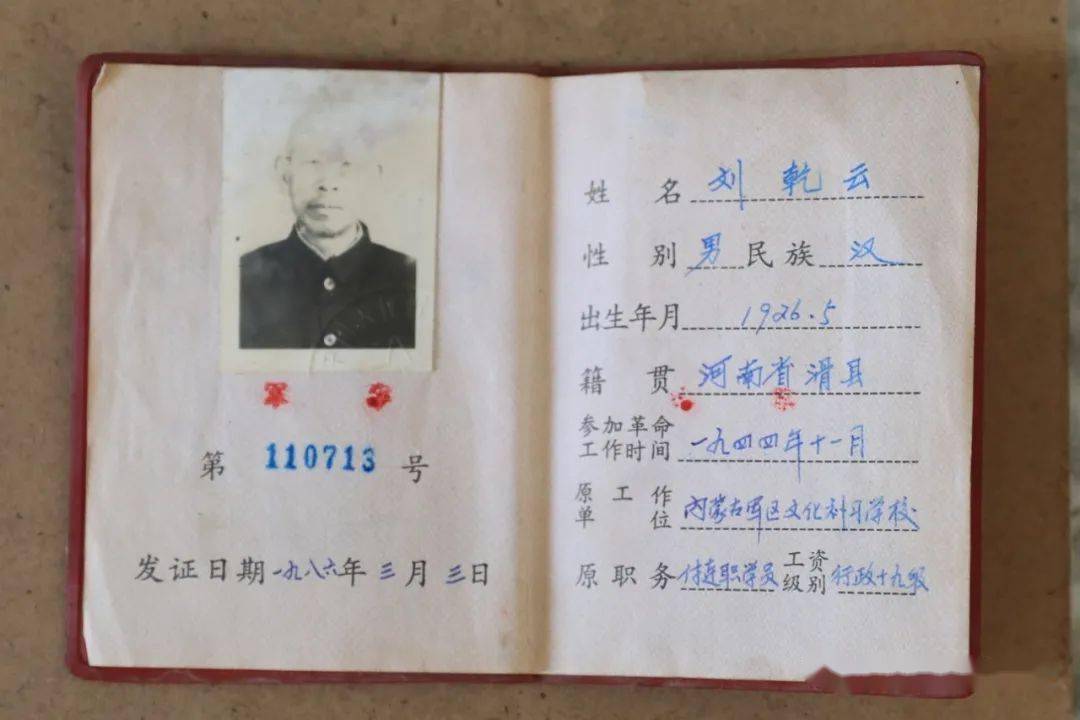 第 110713 号
发证日期 一九八六年 三月 三日
姓名 刘乾云
性别 男 民族 汉
出生年月 1926.5
籍贯 河南省滑县
参加革命
工作时间 一九四四年十一月
原工作
单位 内蒙古军区文化补习学校
原职务 付连职学员 工资
级别 行政十九级